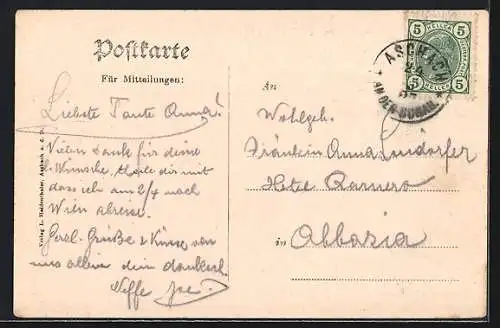 Postkarte
Für Mitteilungen:
Liebste Tante Anna!
Vielen Dank für deine
l. Wünsche, theile dir mit
dass ich am 2/4 nach
Wien abreise.
Herzl. Grüße & Küsse von
uns allen dein dankersch.
Neffe
An
Wohlgeb.
Fräulein Anna
Hotel Quarnero
in
Abbazia
5 HELLER 5
ASCHACH
AN DER DONAU
Verlag L. Aschach a. d. D.